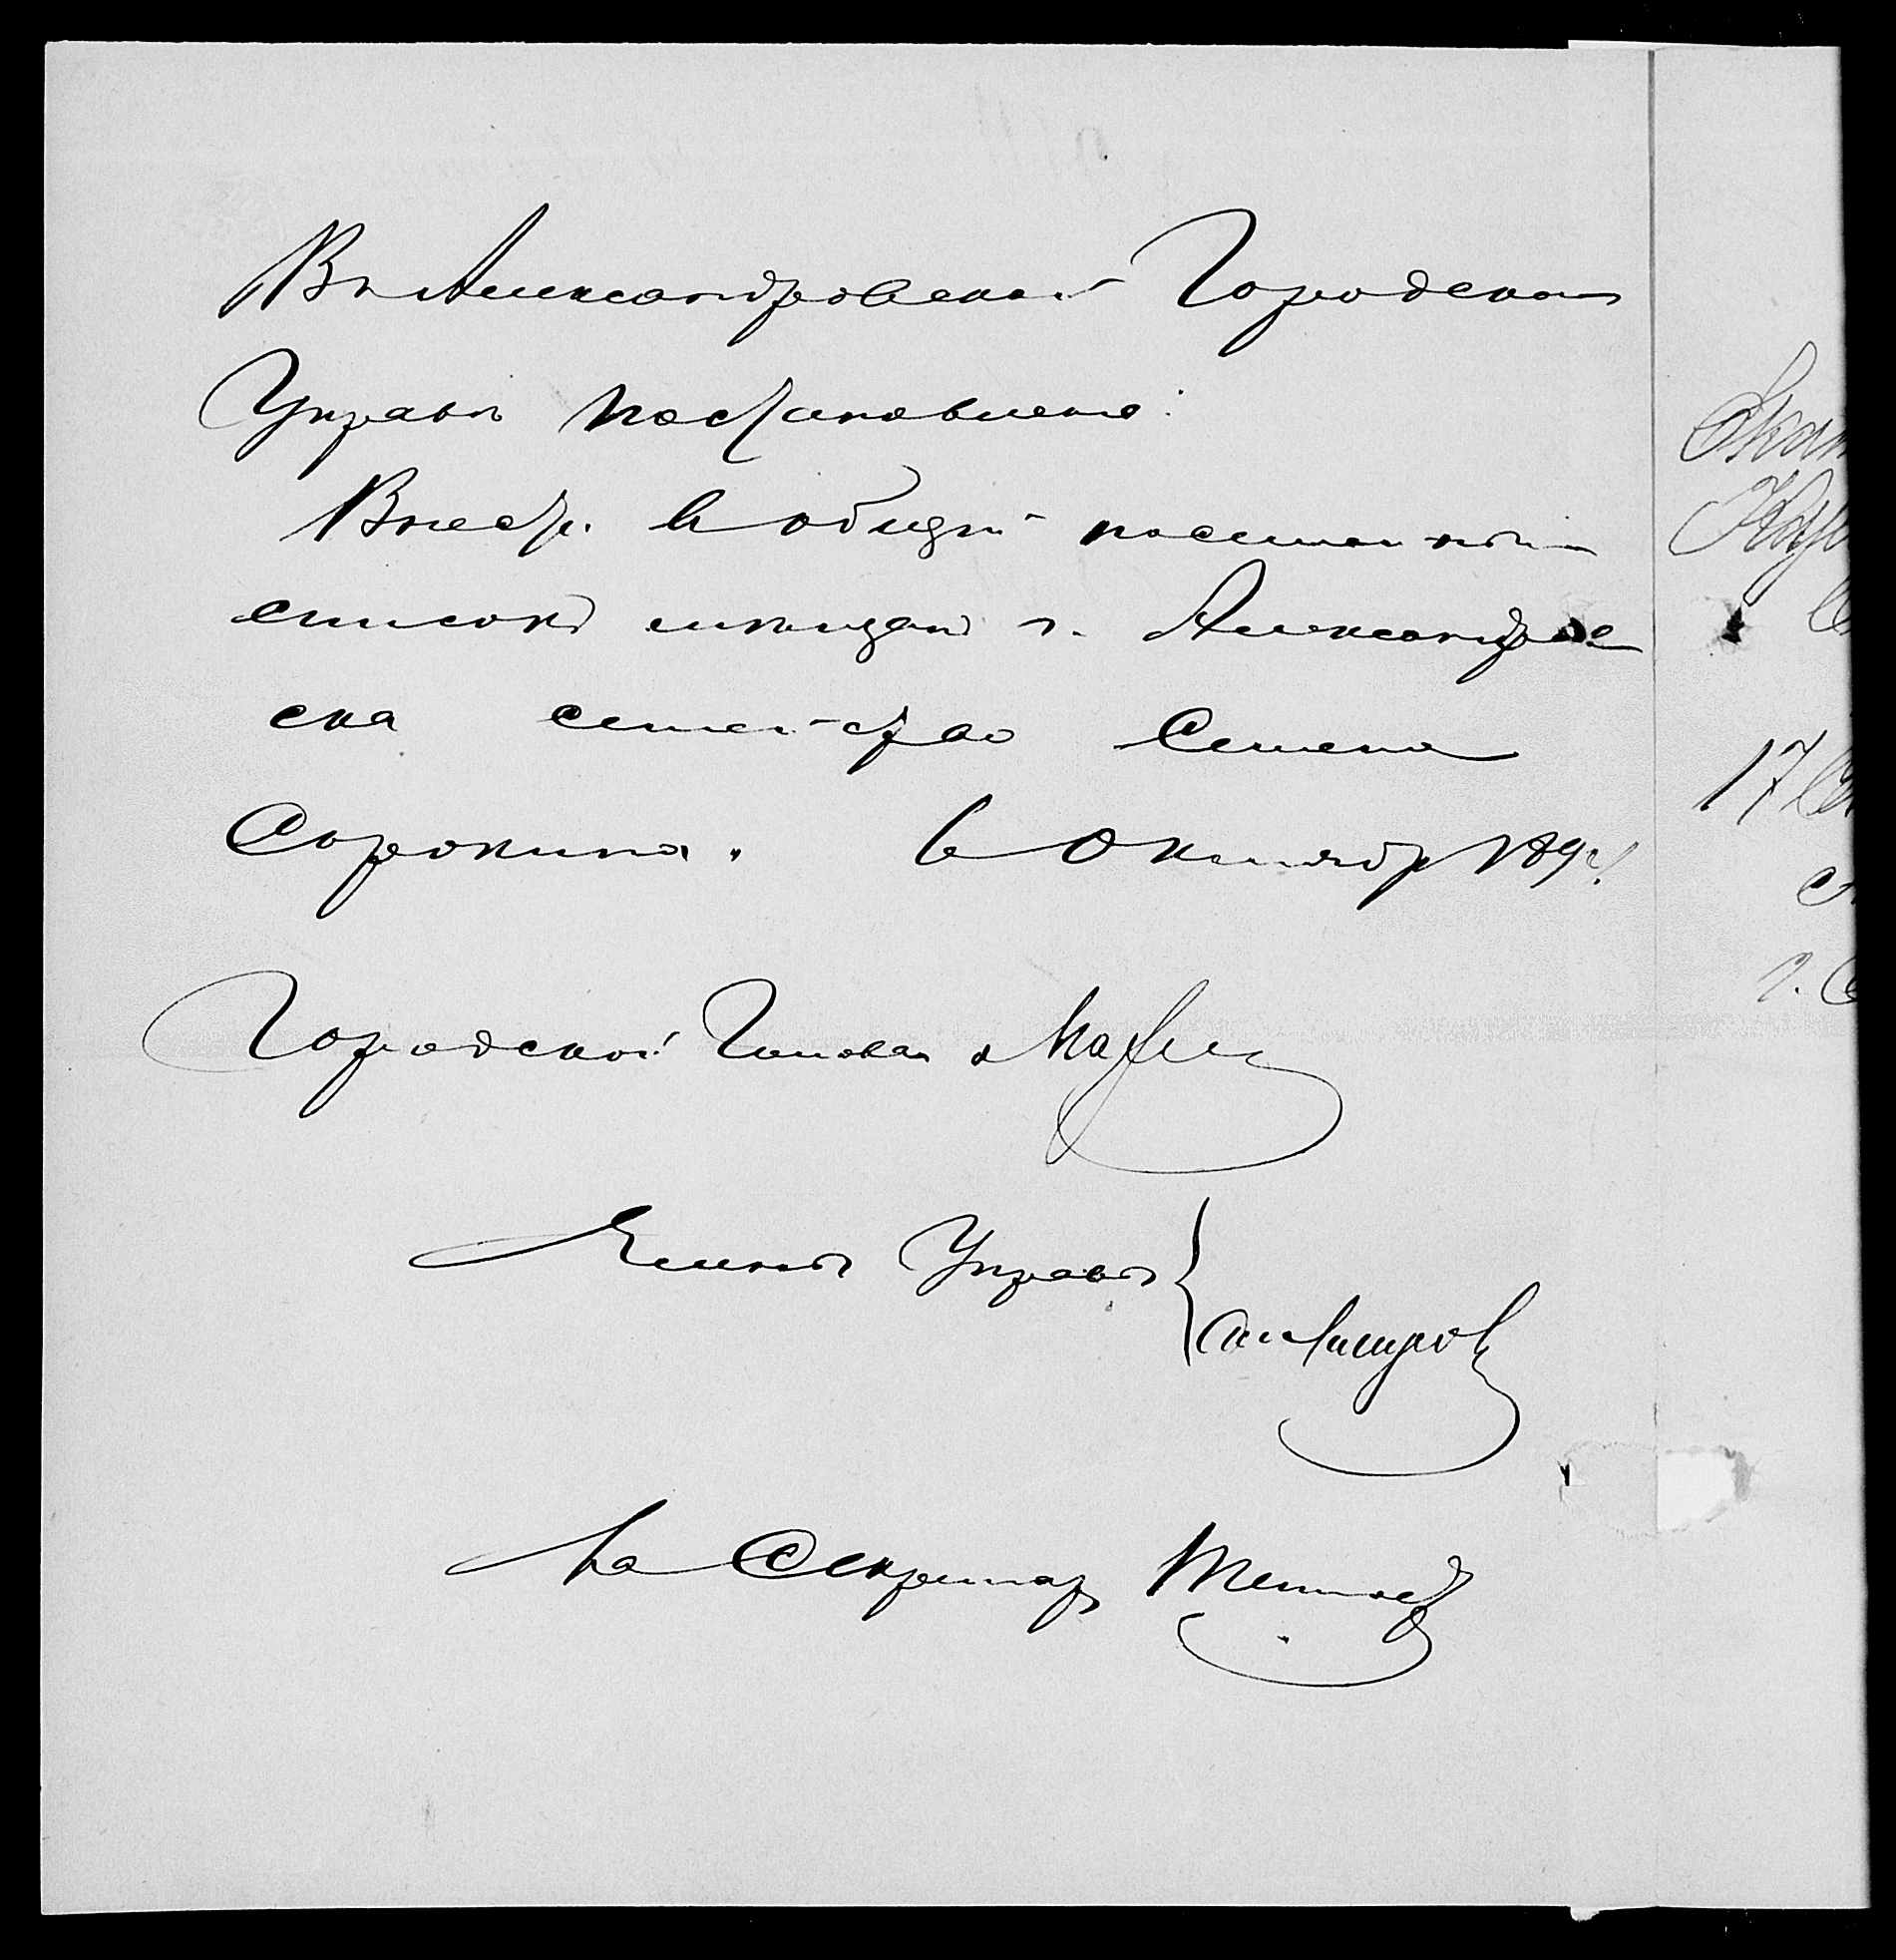 Въ Александровской Городской
Управѣ постановлено:
Внести въ общій посемейный
списокъ мѣщанъ г. Александров
ска семейство Семена
Сорокина. 6 Октября 189
Городской Голова
Члены Управы
За Секретаря
17
г.